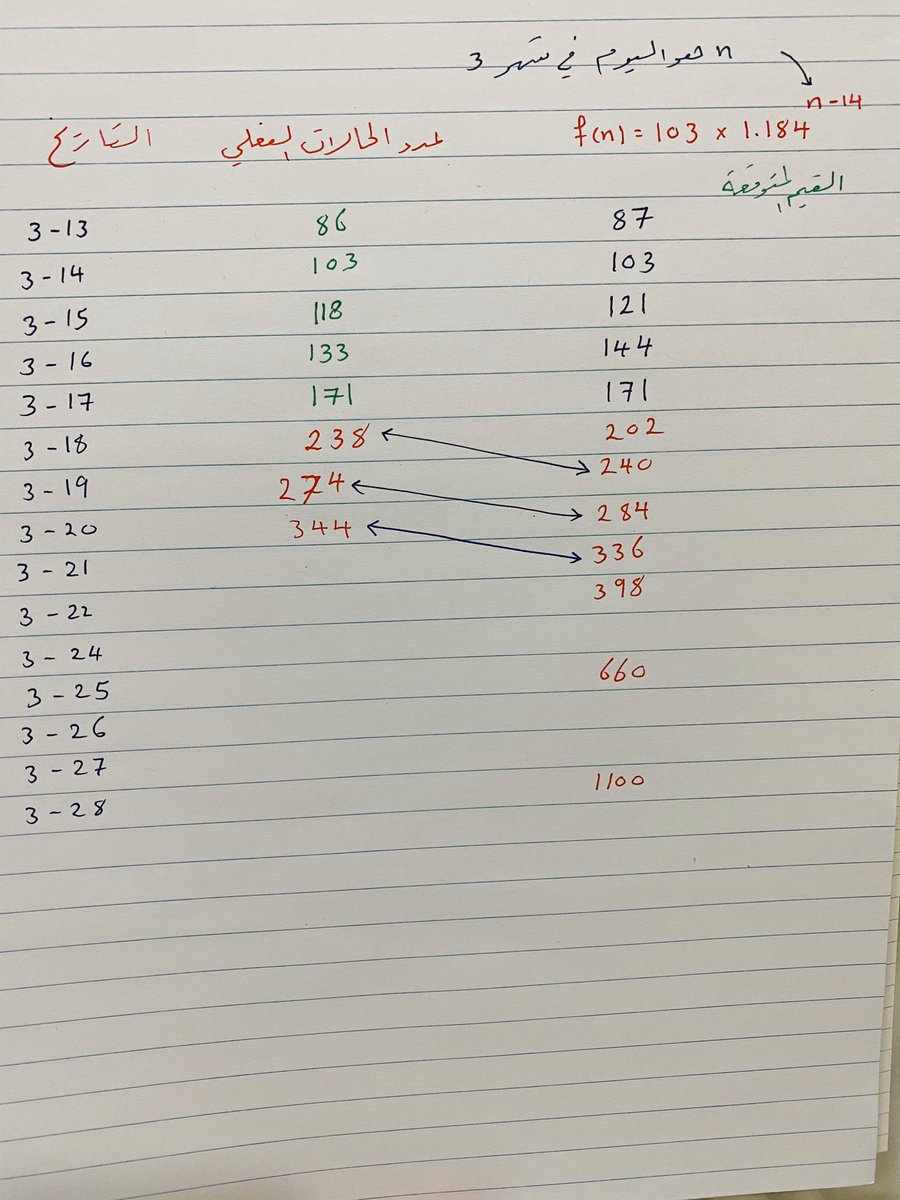 n هو اليوم في شهر 3
التاريخ عدد الحالات الفعلي f(n) = 103 x 1.184^(n-14)
القيم المتوقعة
3-13 86 87
3-14 103 103
3-15 118 121
3-16 133 144
3-17 171 171
3-18 238 202
3-19 274 240
3-20 344 284
3-21 336
3-22 398
3-24
3-25 660
3-26
3-27
3-28 1100